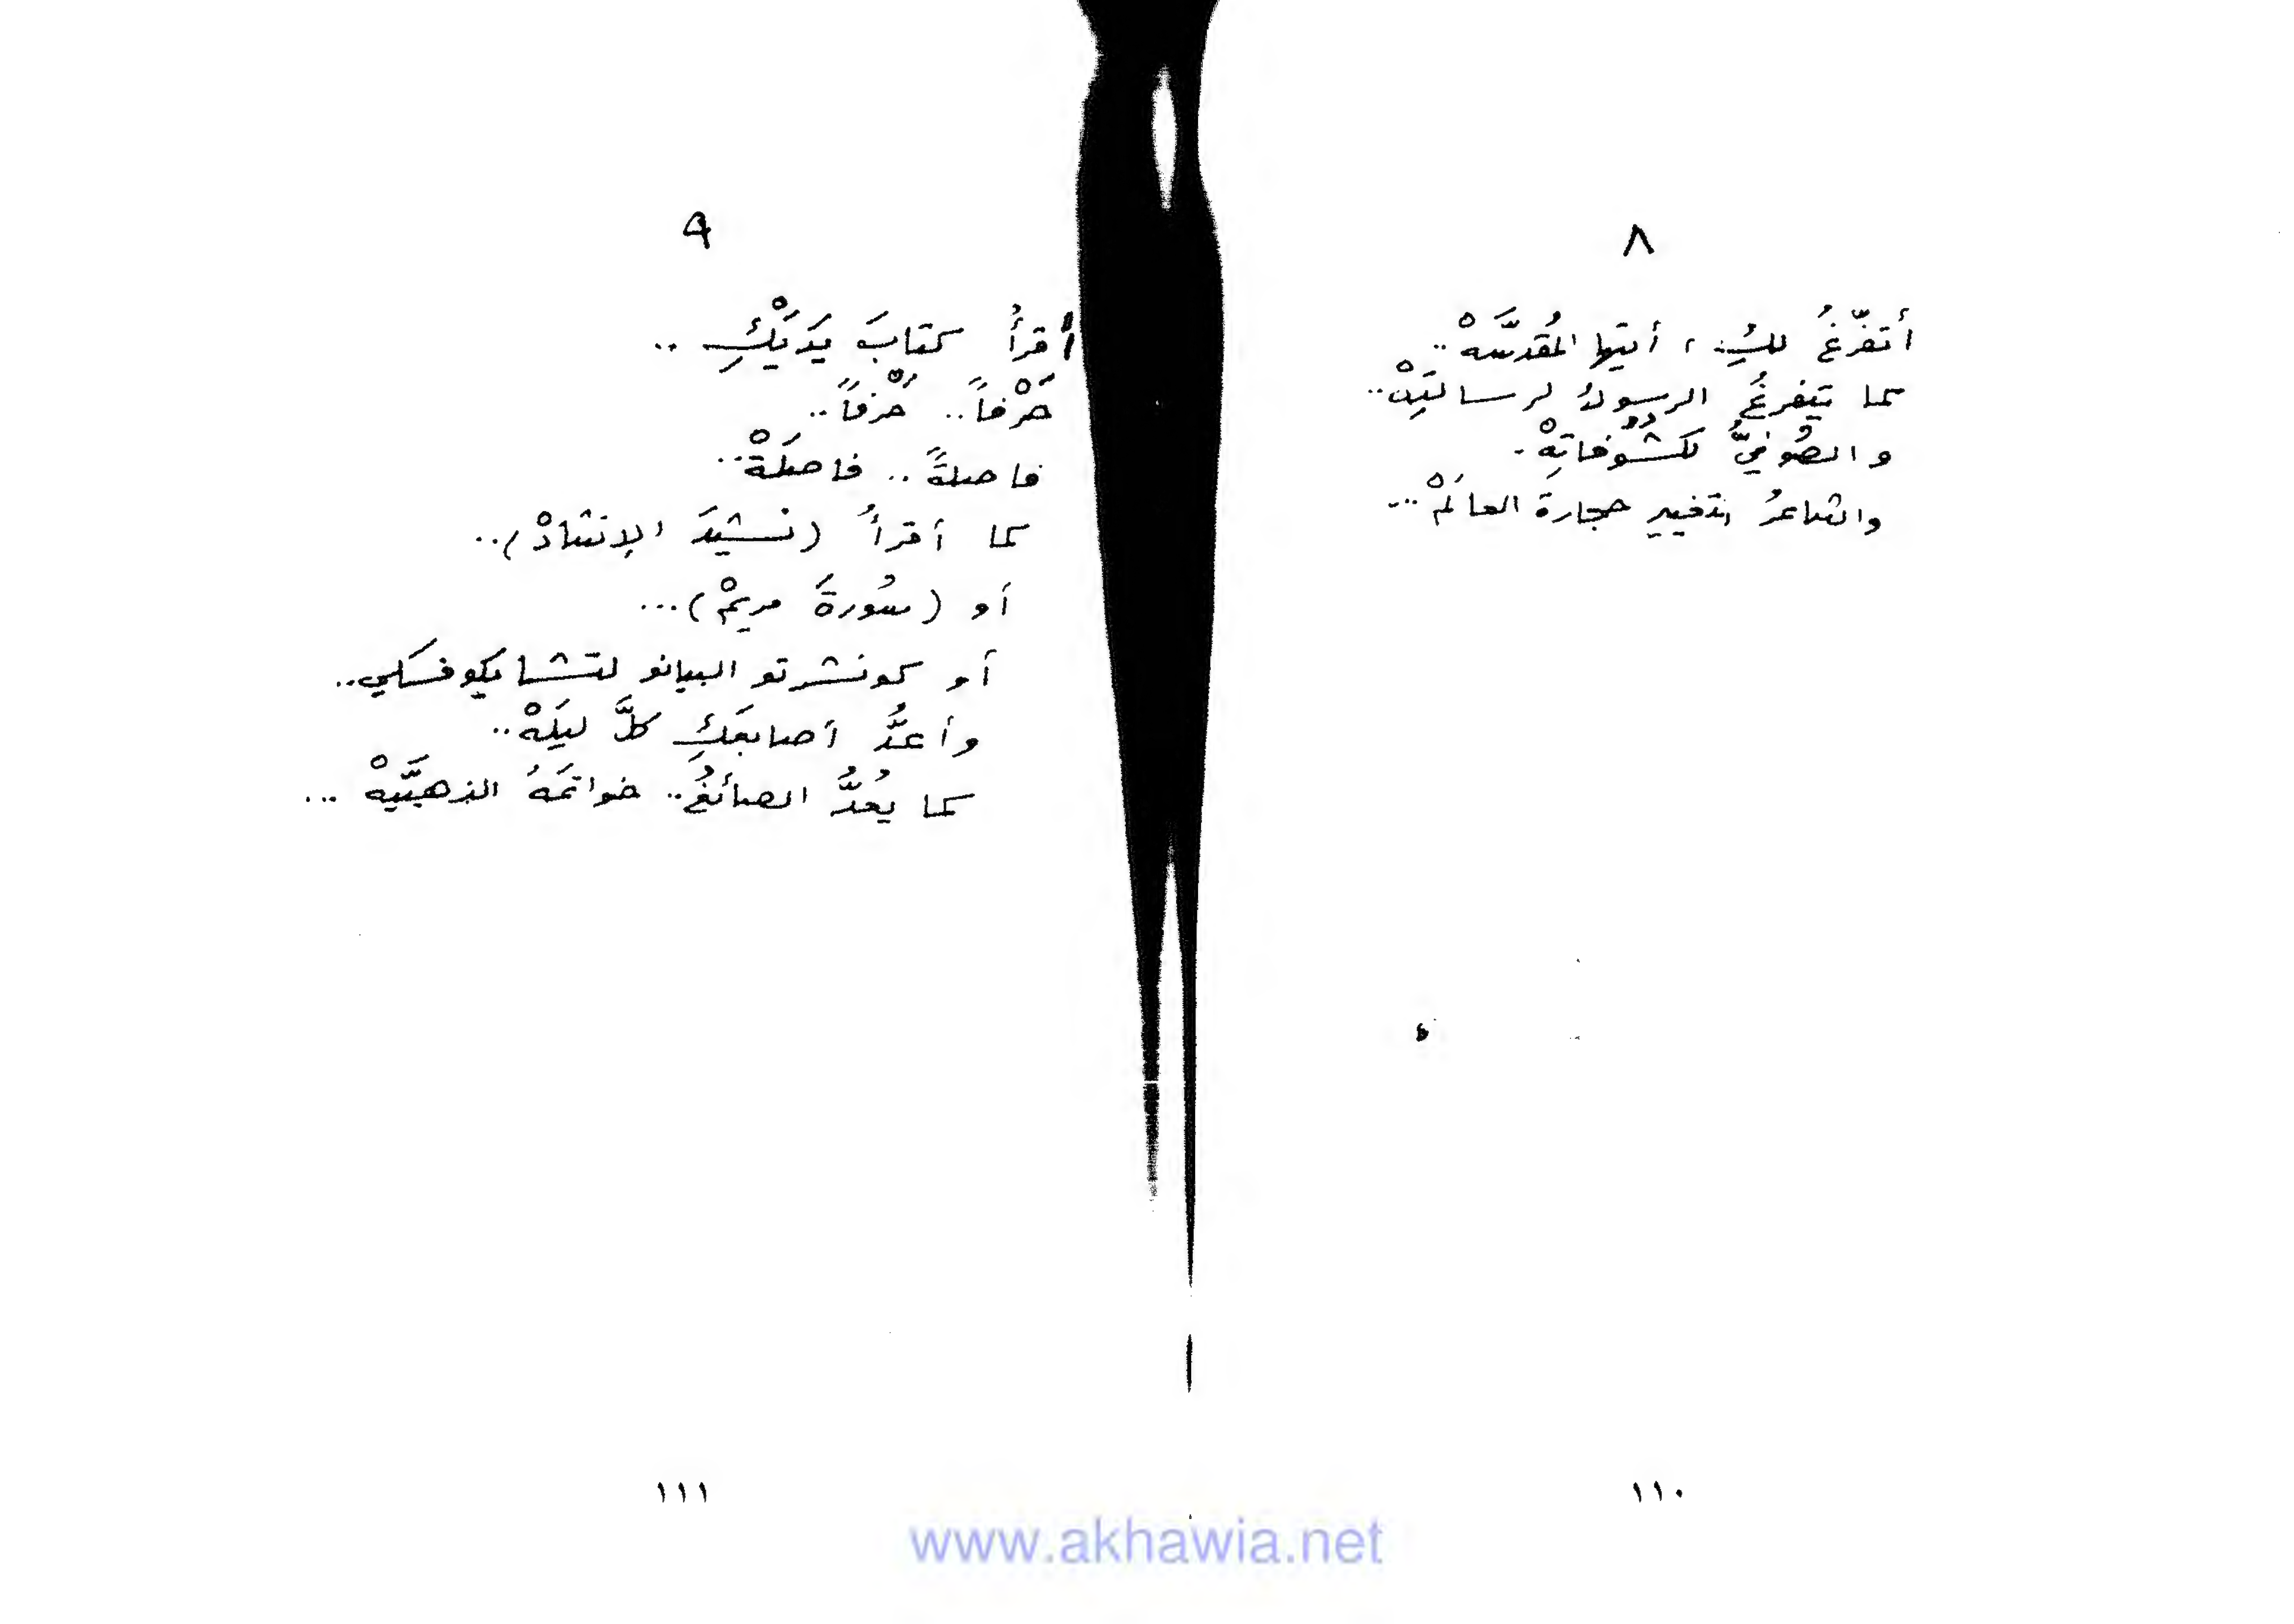 ٨
أتفرّغُ لكِ، أيتها المُقدَّسَهْ..
كما يتفرغُ الرسولُ لرسالتِهْ..
والصُوفيُّ لكُشُوفاتِهْ.
والشاعرُ لتغييرِ حجارةِ العالَمْ...
١١٠
٩
أقرأُ كتابَ يَدَيْكِ ..
حَرْفاً.. حَرْفاً..
فاصلةً.. فاصلَةْ..
كما أقرأُ (نشيدَ الإنشادْ)..
أو (سُورةَ مريمْ)...
أو كونشرتو البيانو لتشايكوفسكي..
وأعدُّ أصابعَكِ كلَّ ليلَهْ..
كما يعُدُّ الصائغُ.. خواتمَهُ الذهبيَّهْ ...
١١١
www.akhawia.net